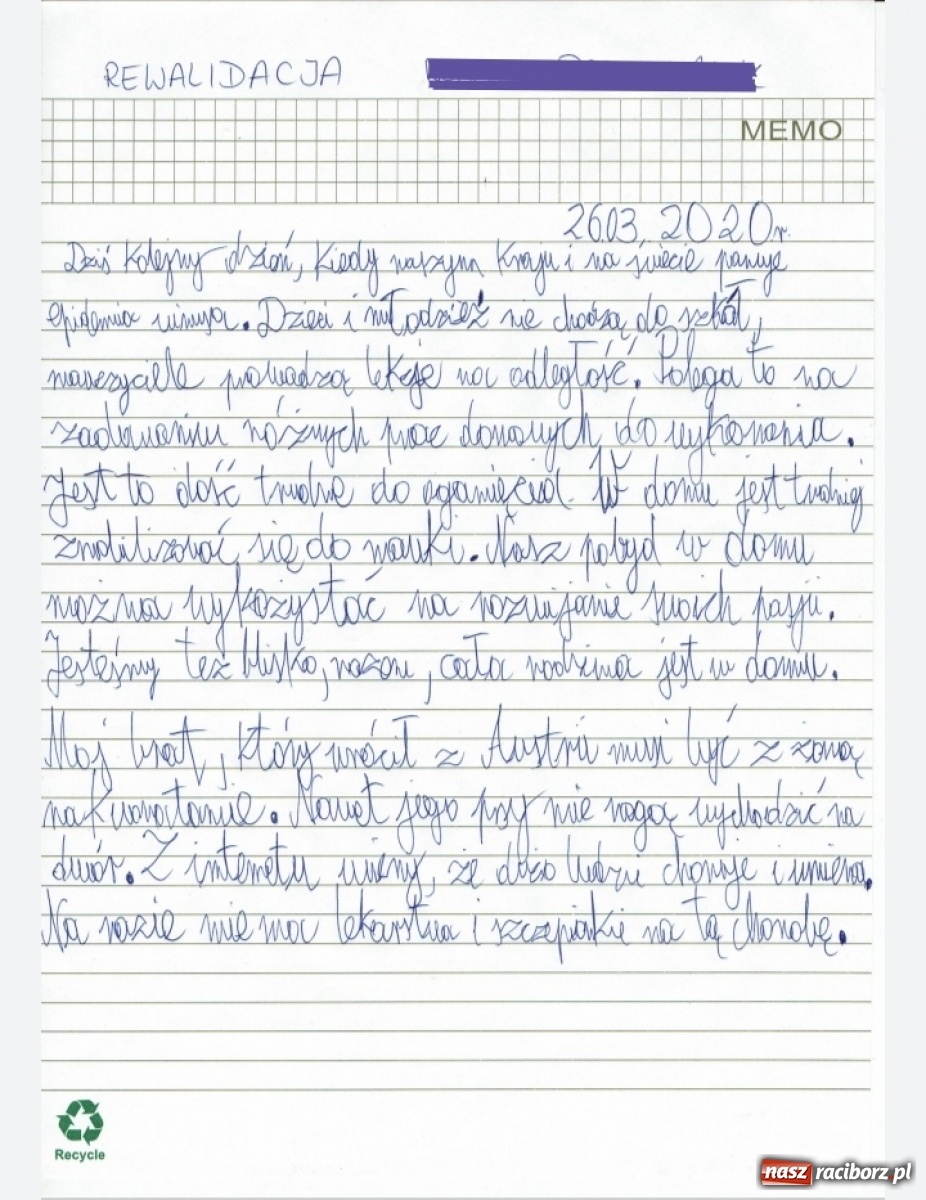 REWALIDACJA
MEMO
26.03.2020r.
Dziś kolejny dzień, kiedy naszym kraju i na świecie panuje
epidemia wirusa. Dzieci i młodzież nie chodzą do szkół,
nauczyciele prowadzą lekcje na odległość. Polega to na
zadawaniu różnych prac domowych do wykonania.
Jest to dość trudne do W domu jest trudniej
zmobilizować się do nauki. Nasz pobyd w domu
można wykożystać na rozwijanie swoich pasji.
Jesteśmy też blisko, razem, cała rodzina jest w domu.
Moj brat, który wrócił z Austrii musi być z żoną
na kwarantanie. Nawet jego psy nie mogą wychodzić na
dwór. Z internetu wiemy, że dużo ludzi choruje i umiera.
Na razie nie ma lekarstwa i szczepionki na tą chorobę.
Recycle
nasz raciborz.pl